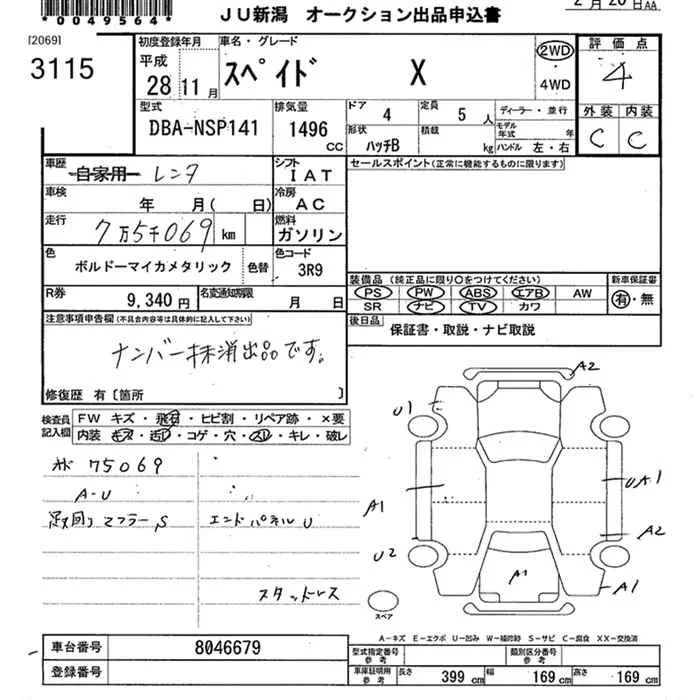 *0049564*
JU新潟 オークション出品申込書
2月20日AA
[20691
3115
初度登録年月
平成
28 11月
車名・グレード
スペイド X
2WD
4WD
評価点
4
外装 内装
C C
型式
DBA-NSP141
排気量
1496
CC
ドア 4
定員 5人
形状 ハッチB
積載 kg
ディーラー・並行
モデル年式 年
ハンドル 左・右
車歴
自家用 レンタ
シフト
IAT
セールスポイント(正常に機能するものに限ります)
車検
年 月( 日)
冷房
AC
走行
7万5千069 km
燃料
ガソリン
色
ボルドーマイカメタリック
色替
色コード
3R9
装備品 (純正品に限り○をつけてください)
PS PW ABS エアB AW
SR ナビ TV カワ
新車保証書
有・無
R券
9,340円
名変通知期限
月 日
後日品
保証書・取説・ナビ取説
注意事項申告欄(不具合内容等は具体的に記入して下さい)
ナンバー抹消出品です。
修復歴 有〔箇所 〕
検査員記入欄
FW キズ・飛石・ヒビ割・リペア跡・×要
内装 キズ・ヨゴレ・コゲ・穴・スレ・キレ・破レ
75069
A-U
足回り マフラーS
エンドパネルU
スタッドレス
A2
U1
A1
UA1
A2
U2
A1
A1
スペア
A-キズ E-エクボ U-凹み W-補修跡 S-サビ C-腐食 XX-交換済
車台番号
8046679
登録番号
型式指定番号
参考
類別区分番号
参考
車庫証明用
参考
長さ 399cm
幅 169cm
高さ 169cm